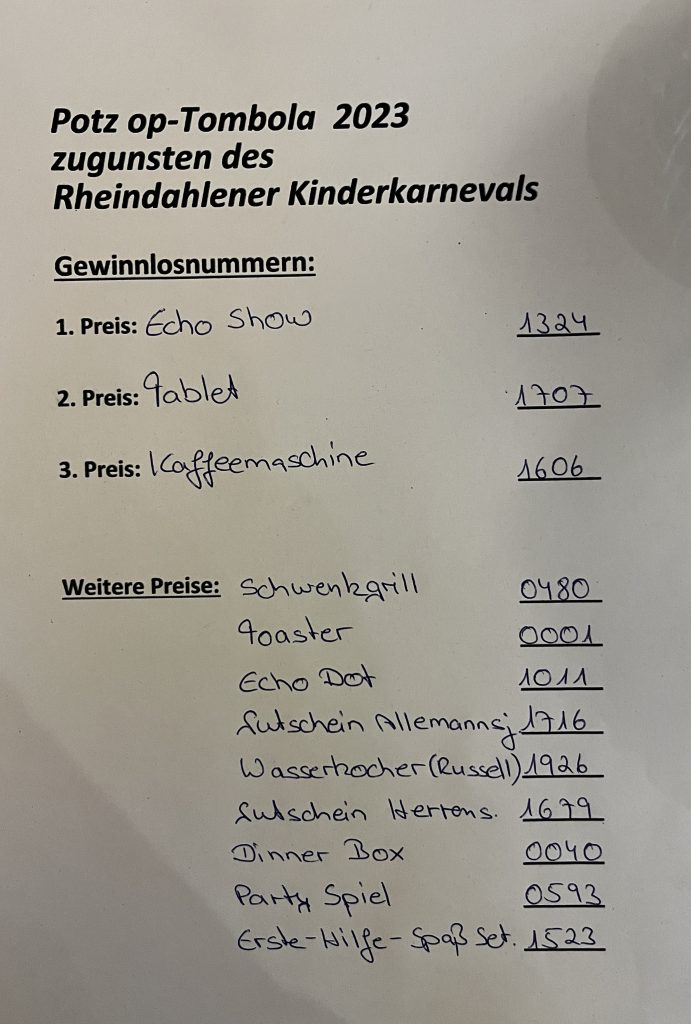 Potz op-Tombola 2023
zugunsten des
Rheindahlener Kinderkarnevals
Gewinnlosnummern:
1. Preis: Echo Show 1324
2. Preis: Tablet 1707
3. Preis: Kaffeemaschine 1606
Weitere Preise: Schwenkgrill 0480
Toaster 0001
Echo Dot 1011
Gutschein Allemannsj 1716
Wasserkocher (Russell) 1926
Gutschein Herrens. 1679
Dinner Box 0040
Party Spiel 0593
Erste-Hilfe-Spaß Set. 1523